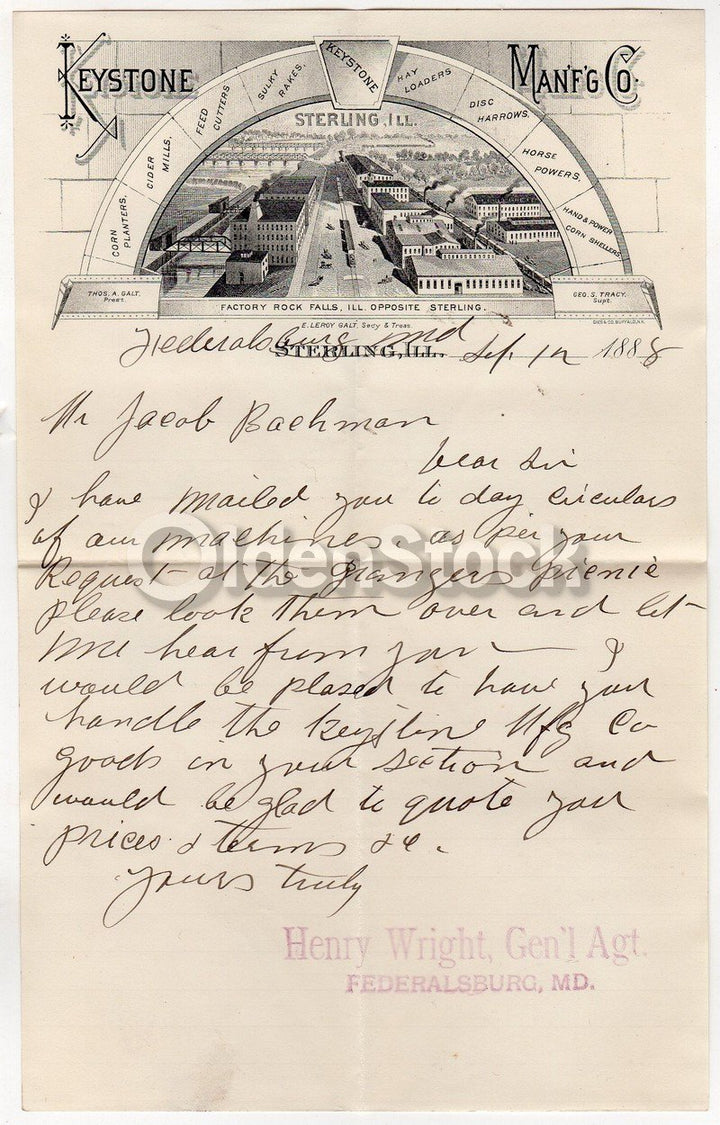 KEYSTONE MAN'F'G CO.
KEYSTONE
CORN PLANTERS,
CIDER MILLS,
FEED CUTTERS
SULKY RAKES,
HAY LOADERS
DISC HARROWS,
HORSE POWERS,
HAND & POWER CORN SHELLERS
STERLING, ILL.
THOS. A. GALT, Prest.
GEO. S. TRACY, Supt.
FACTORY ROCK FALLS, ILL. OPPOSITE STERLING.
E. LEROY GALT, Secy & Treas.
Federalsburg Md
STERLING, ILL. Sep. 12 1888
Mr Jacob Bachman
Dear Sir
I have mailed you to day circulars
of our machines as per your
Request at the Grangers picnic
please look them over and let
me hear from you — I
would be plased to have you
handle the Keystone Mfg Co
goods in your section and
would be glad to quote you
prices & terms &c.
Yours truly
Henry Wright, Gen'l Agt.
FEDERALSBURG, MD.
OldenStock